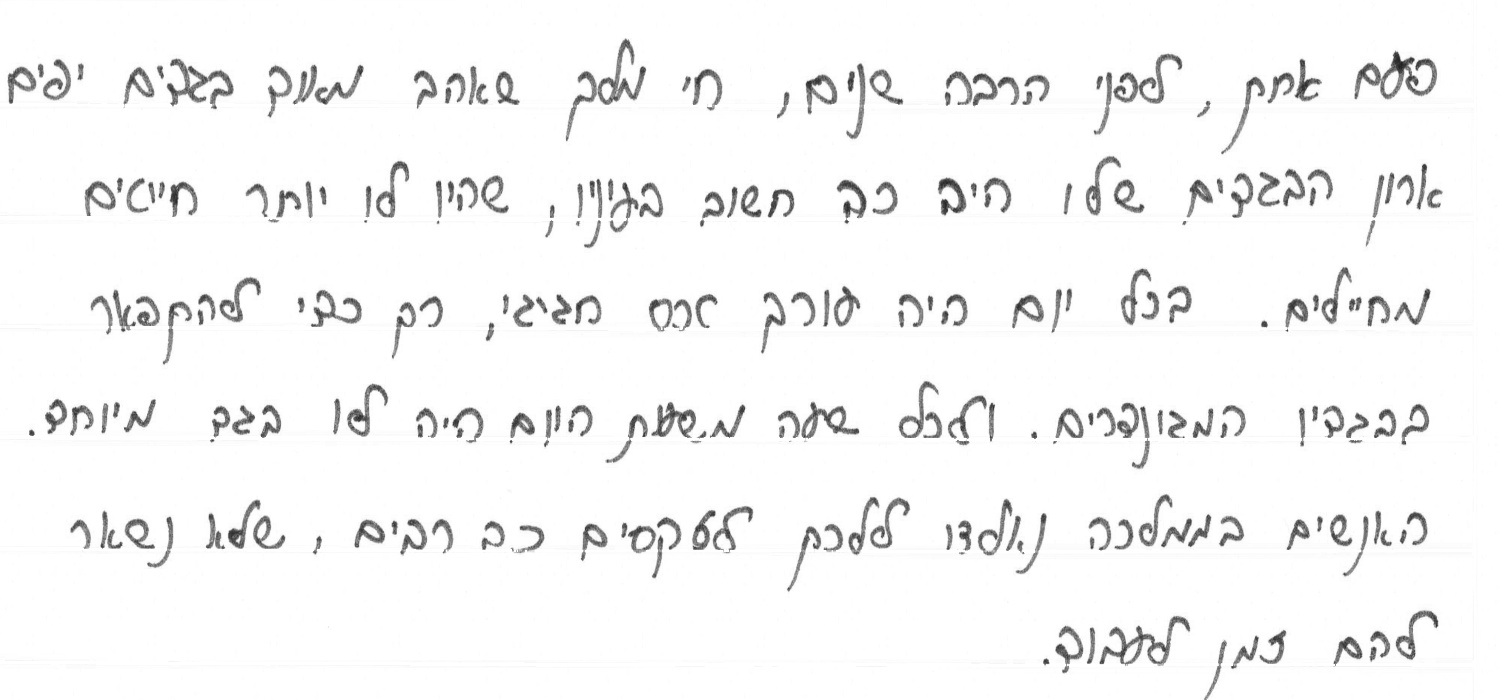 פעם אחת, לפני הרבה שנים, חי מלך שאהב מאוד בגדים יפים
ארון הבגדים שלו היה כה חשוב בעיניו, שהיו לו יותר חייטים
מחיילים. בכל יום היה עורך טכס חגיגי, רק כדי להתפאר
בבגדיו המגונדרים. ולכל שעה משעת היום היה לו בגד מיוחד.
האנשים בממלכה נאלצו ללכת לטקסים כה רבים, שלא נשאר
להם זמן לעבוד.